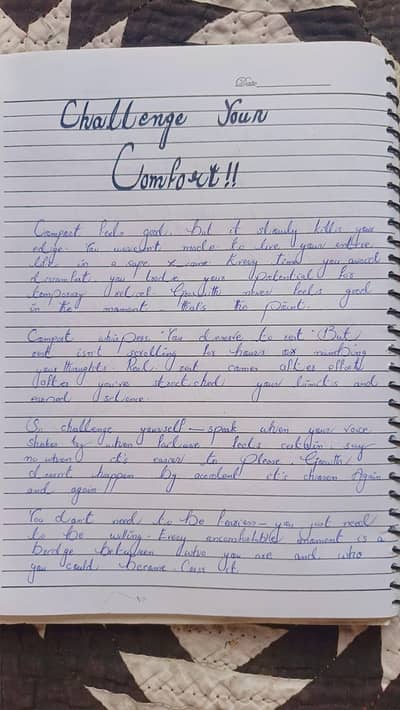 Date
Challenge Your
Comfort!!
Comport feels good, but it slowly kills your
edge. You weren't made to live your entire
life in a safe zone. Every time you avoid
discomfort, you trade your potential for
temporary relief. Growth never feels good
in the moment that's the point.
Comfort whispers "You deserve to rest". But
rest isn't scrolling for hours or numbing
your thoughts. Real rest comes after effort
after you've stretched your limits and
earned silence.
So challenge yourself — speak when your voice
shakes try when failure feels certain, say
no when it's easier to please. Growth
doesn't happen by accident it's chosen Again
and again
You don't need to be fearless — you just need
to be willing. Every uncomfortable moment is a
bridge between who you are and who
you could become. Cross it.